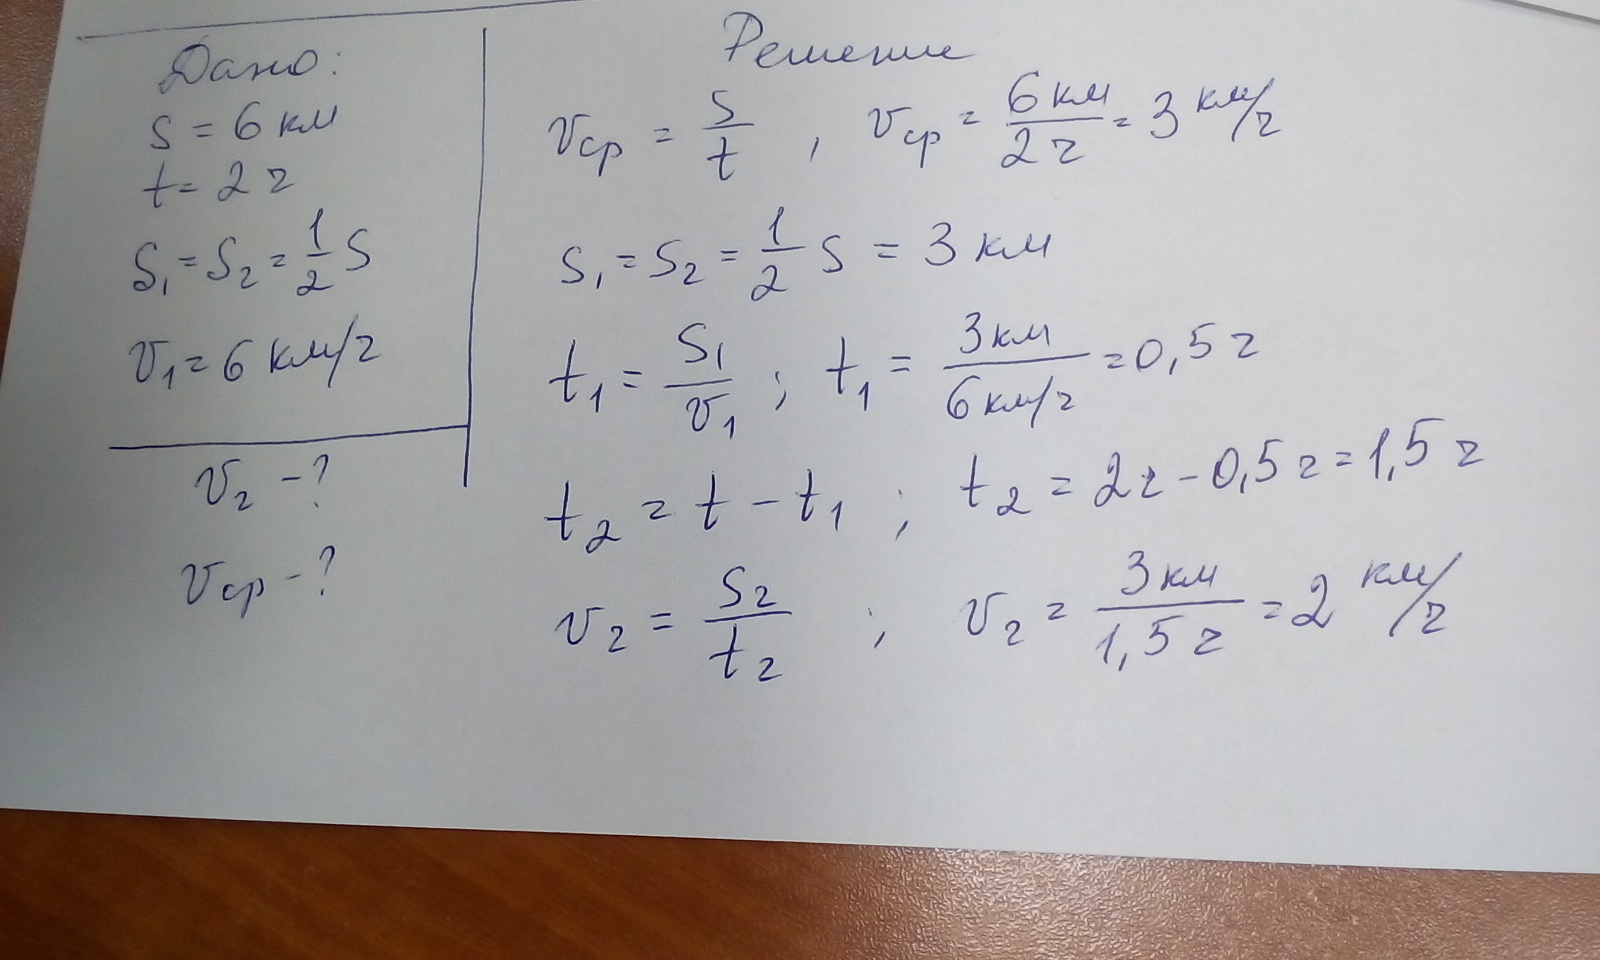 Дано:
S = 6 км
t = 2 ч
S₁ = S₂ = 1/2 S
v₁ = 6 км/ч
v₂ - ?
vср - ?
Решение
vср = S/t , vср = 6 км/2 ч = 3 км/ч
S₁ = S₂ = 1/2 S = 3 км
t₁ = S₁/v₁ ; t₁ = 3 км/6 км/ч = 0,5 ч
t₂ = t - t₁ ; t₂ = 2 ч - 0,5 ч = 1,5 ч
v₂ = S₂/t₂ ; v₂ = 3 км/1,5 ч = 2 км/ч